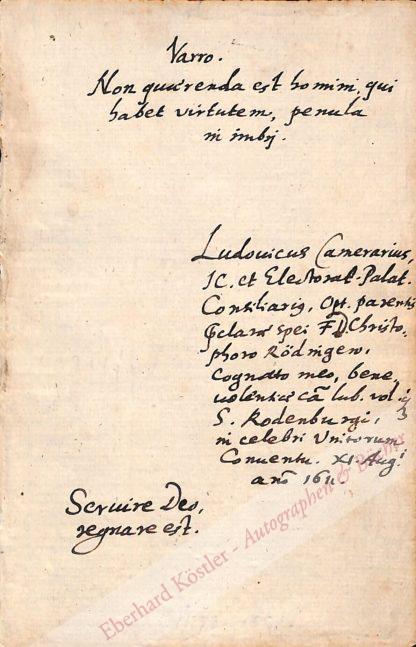 Varro.
Non quærenda est homini, qui
habet virtutem, penula
in imbrj.
Ludovicus Camerarius,
JC. et Electoral. Palat.
Consiliariq, Opt. parentis
pclaræ spei F. D. Christo,
phoro Rödingero,
cognato meo, bene,
volentiæ cā lub. vol.
S. Rodenburgi,
in celebri Unitorum
Conventu. XI. Aug.
año 1611
Servire Deo,
regnare est.
Eberhard Köstler - Autographen & Bücher